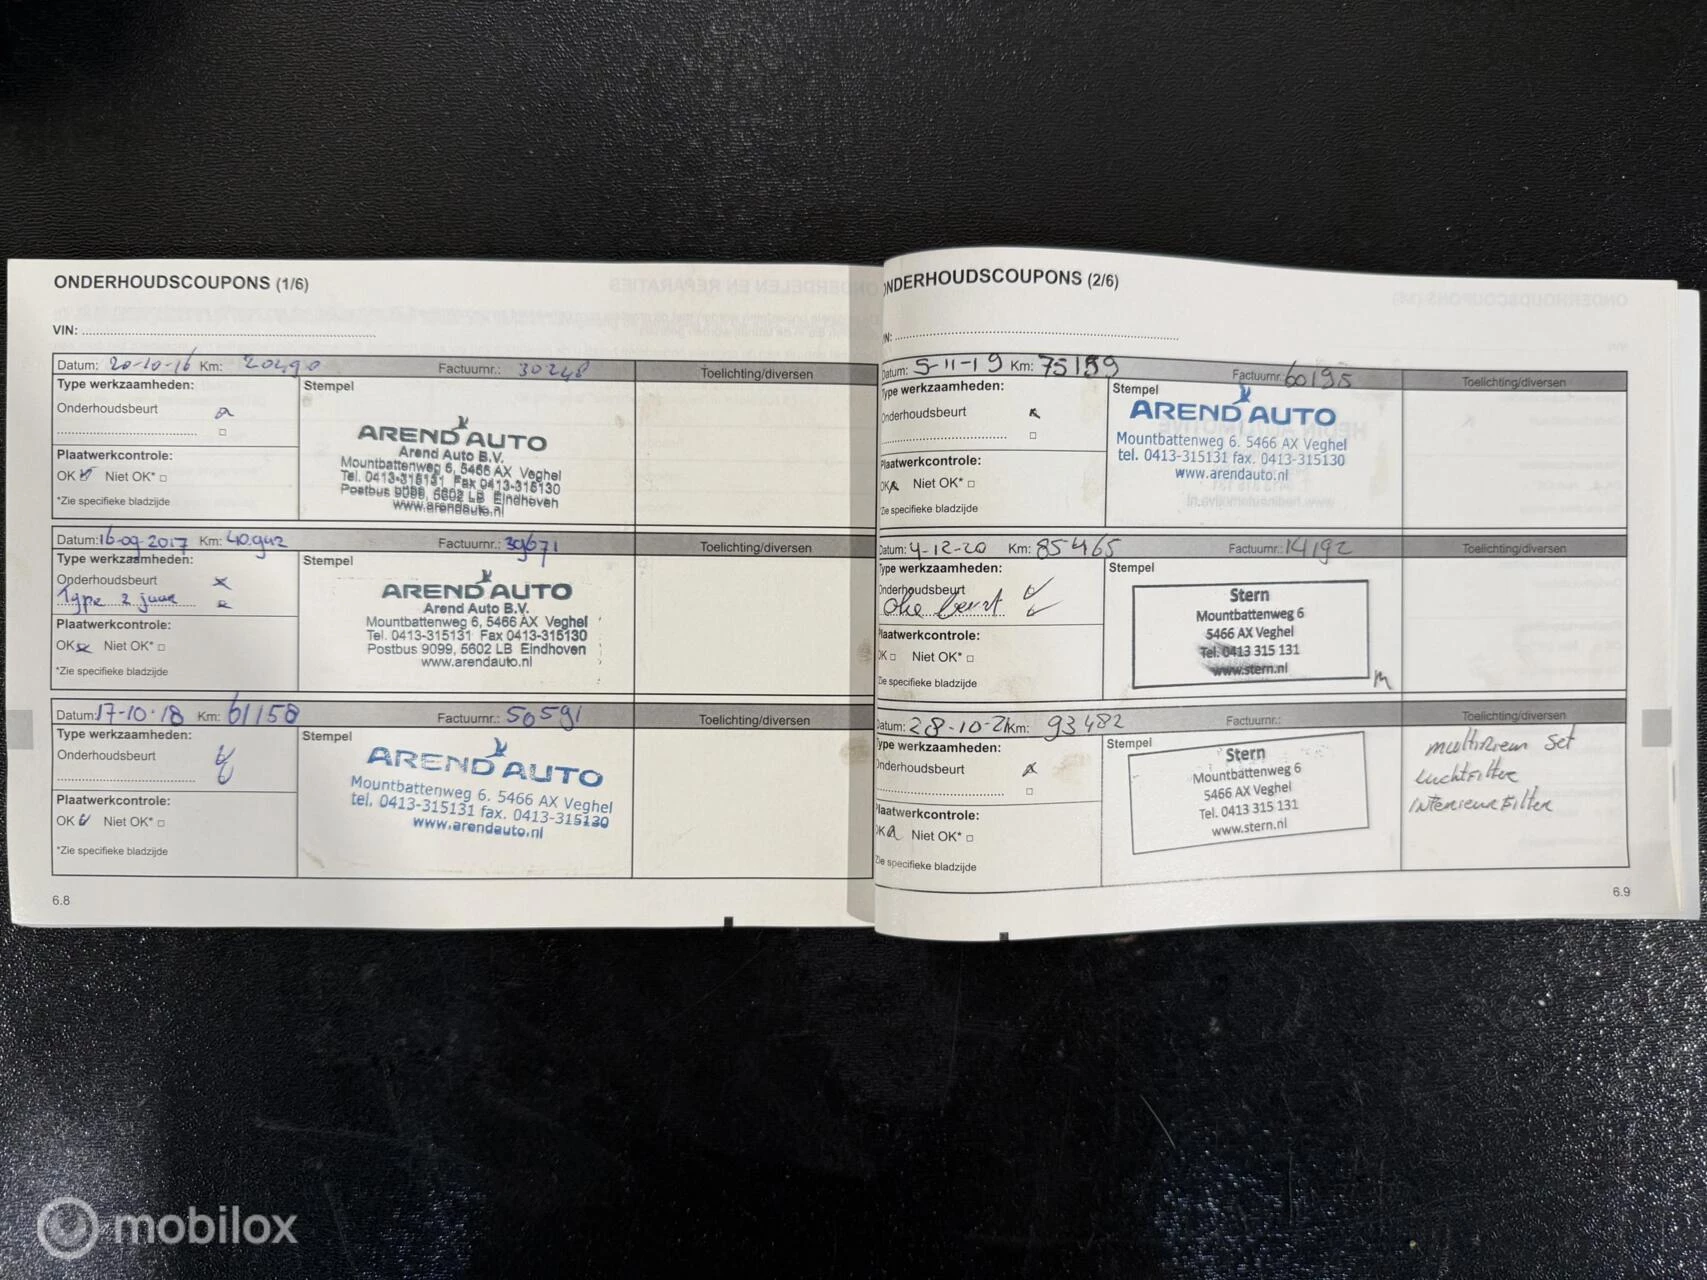 ONDERHOUDSCOUPONS (1/6)
VIN:
Datum: 20-10-16 Km: 20490 Factuurnr.: 30248 Toelichting/diversen
Type werkzaamheden:
Onderhoudsbeurt
Plaatwerkcontrole:
OK Niet OK*
*Zie specifieke bladzijde
Stempel
AREND AUTO
Arend Auto B.V.
Mountbattenweg 6, 5466 AX Veghel
Tel. 0413-315131 Fax 0413-315130
Postbus 9099, 5602 LB Eindhoven
www.arendauto.nl
Datum: 16-09-2017 Km: 40.942 Factuurnr.: 39671 Toelichting/diversen
Type werkzaamheden:
Onderhoudsbeurt
Type 2 jaar
Plaatwerkcontrole:
OK Niet OK*
*Zie specifieke bladzijde
Stempel
AREND AUTO
Arend Auto B.V.
Mountbattenweg 6, 5466 AX Veghel
Tel. 0413-315131 Fax 0413-315130
Postbus 9099, 5602 LB Eindhoven
www.arendauto.nl
Datum: 17-10-18 Km: 61158 Factuurnr.: 50591 Toelichting/diversen
Type werkzaamheden:
Onderhoudsbeurt
Plaatwerkcontrole:
OK Niet OK*
*Zie specifieke bladzijde
Stempel
AREND AUTO
Mountbattenweg 6. 5466 AX Veghel
tel. 0413-315131 fax. 0413-315130
www.arendauto.nl
6.8
ONDERHOUDSCOUPONS (2/6)
Datum: 5-11-19 Km: 75199 Factuurnr.: 60195 Toelichting/diversen
Type werkzaamheden:
Onderhoudsbeurt
Plaatwerkcontrole:
OK Niet OK*
Zie specifieke bladzijde
Stempel
AREND AUTO
Mountbattenweg 6. 5466 AX Veghel
tel. 0413-315131 fax. 0413-315130
www.arendauto.nl
Datum: 4-12-20 Km: 85465 Factuurnr.: 14192 Toelichting/diversen
Type werkzaamheden:
Onderhoudsbeurt
Olie beurt
Plaatwerkcontrole:
OK Niet OK*
Zie specifieke bladzijde
Stempel
Stern
Mountbattenweg 6
5466 AX Veghel
Tel. 0413 315 131
www.stern.nl
Datum: 28-10-21 Km: 93482 Factuurnr.: Toelichting/diversen
Type werkzaamheden:
Onderhoudsbeurt
Plaatwerkcontrole:
OK Niet OK*
Zie specifieke bladzijde
Stempel
Stern
Mountbattenweg 6
5466 AX Veghel
Tel. 0413 315 131
www.stern.nl
multiriem set
Luchtfilter
interieurfilter
6.9
mobilox